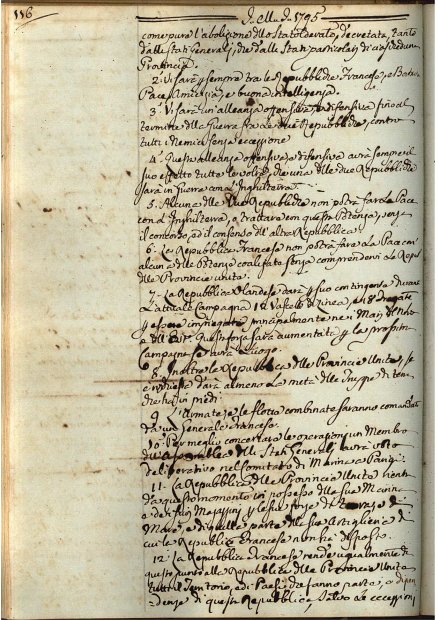 116
1795
come pure l'abolizione dello Statolderato, decretata, tanto
dalli Stati Generali, che dalli Stati particolari di ciascheduna
Provincia.
2. Vi sarà sempre tra le Repubbliche Francese, e Batava
Pace, Amicizia, e buona intelligenza.
3. Vi sarà un'alleanza offensiva, e difensiva fino al
termine della Guerra fra le due Repubbliche, contro
tutti i Nemici senza eccezione
4. Quest'alleanza offensiva, e difensiva avrà sempre il
suo effetto tutte le volte, che una delle due Repubbliche
sarà in Guerra con l'Inghilterra.
5. Alcuna delle due Repubbliche non potrà far la Pace
con l'Inghilterra, o trattare con questa Potenza, senza
il concorso, ed il consenso dell'altra Repubblica.
6. La Repubblica Francese non potrà fare la Pace con
alcuna delle Potenze coalizzate senza comprendervi la Repub
delle Provincie unite.
7. La Repubblica Olandese darà per suo contingente durante
l'attuale Campagna 12 Vascelli di linea, e 18 Fregate
per essere impiegate principalmente nei Mari del Nord
e dell'Est. Questa forza sarà aumentata per la prossima
Campagna se avrà luogo.
8. Inoltre la Repubblica delle Provincie Unite, se
è richiesta darà almeno la metà delle Truppe di terra
che ha in piedi.
9. L'Armate, e le flotte combinate saranno comandate
da un Generale Francese.
10. Per meglio concertare le operazioni un Membro
dell'Assemblea delli Stati Generali avrà voto
deliberativo nel Comitato di Marina a Parigi.
11. La Repubblica delle Provincie Unite rientra
da questo momento in possesso della sua Marina
e dei suoi Magazzini, e le sue forze di terra, e di
Mare, e di quella parte della sua Artiglieria di
cui la Repubblica Francese non ha disposto.
12. La Repubblica Francese rende ugualmente di
questo punto alla Repubblica delle Provincie Unite
tutti il Territorio, e di Paesi che fanno parte, o dipen
denze di questa Repubblica, salvo le eccezioni